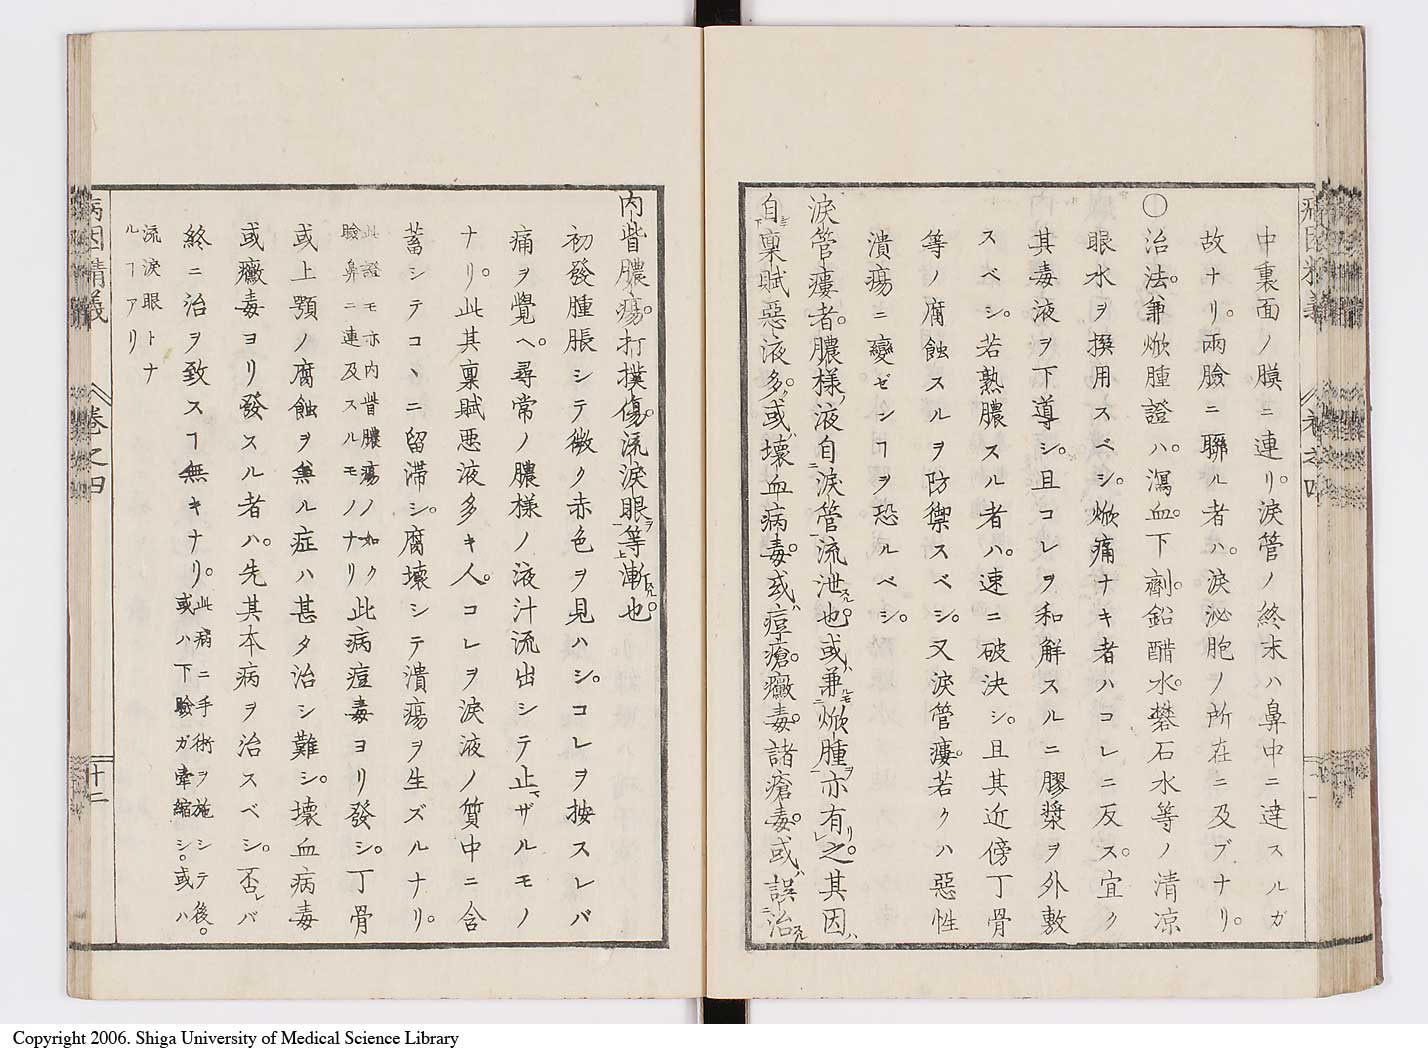 中裏面ノ膜ニ連リ。淚管ノ終末ハ鼻中ニ達スルガ
故ナリ。兩瞼ニ聯ル者ハ。淚泌胞ノ所在ニ及ブナリ。
〇治法。兼焮腫證ハ。瀉血。下劑。鉛醋水。礬石水等ノ清凉
眼水ヲ撰用スベシ。焮痛ナキ者ハコレニ反ス。宜ク
其毒液ヲ下導シ。且コレヲ和解スルニ膠漿ヲ外敷
スベシ。若熟膿スル者ハ。速ニ破決シ。且其近傍丁骨
等ノ腐蝕スルヲ防禦スベシ。又淚管瘻。若クハ惡性
潰瘍ニ變ゼンヿヲ恐ルベシ。
淚管瘻者。膿樣ノ液自淚管流泄スル也。或ハ兼ルモ焮腫ヲ亦有リ之。其因ハ
自禀賦惡液多。或ハ壞血病毒。或ハ痘瘡。黴毒。諸瘡毒。或ハ誤治スル
內眥膿瘍。打撲傷。流淚眼ヲ等漸スル。也
初發腫脹シテ微ク赤色ヲ見ハシ。コレヲ按スレバ
痛ヲ覺ヘ。尋常ノ膿樣ノ液汁流出シテ止マザルモノ
ナリ。此其禀賦惡液多キ人。コレヲ淚液ノ質中ニ含
蓄シテコヽニ留滞シ。腐壞シテ潰瘍ヲ生ズルナリ。
此證モ亦內眥膿瘍ノ如ク
瞼鼻ニ連及スルモノナリ
此病痘毒ヨリ發シ。丁骨
或上顎ノ腐蝕ヲ兼ル症ハ甚タ治シ難シ。壞血病毒
或黴毒ヨリ發スル者ハ。先其本病ヲ治スベシ。否レバ
終ニ治ヲ致スヿ無キナリ。
此病ニ手術ヲ施シテ後。
或ハ下瞼ガ牽縮シ。或ハ
流淚眼トナ
ルヿアリ
病因精義
卷之四
十二